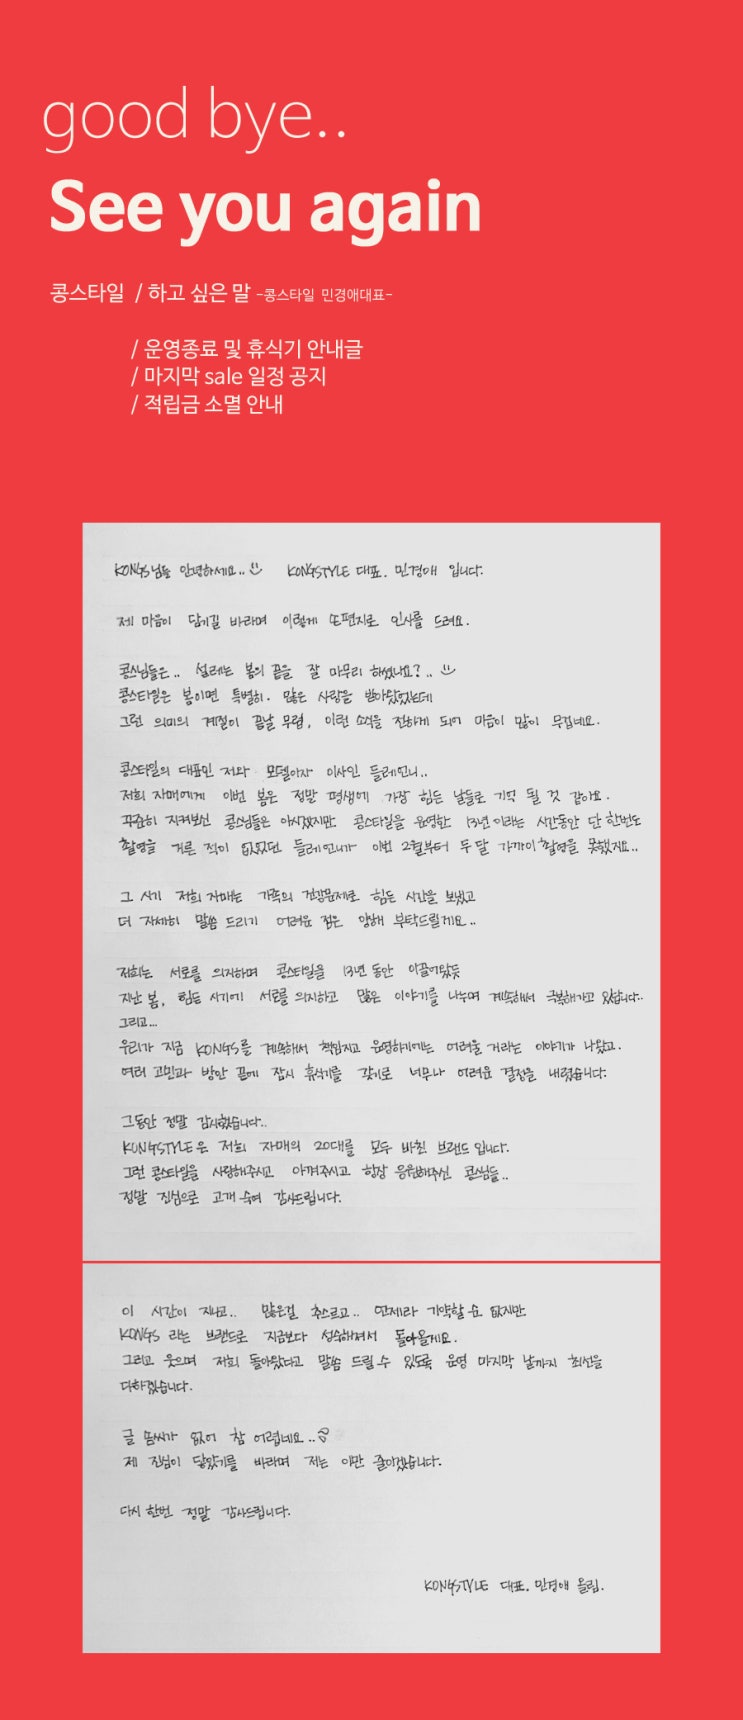 good bye..
See you again
콩스타일 / 하고 싶은 말 -콩스타일 민경애대표-
/ 운영종료 및 휴식기 안내글
/ 마지막 sale 일정 공지
/ 적립금 소멸 안내
KONGS님들 안녕하세요.. KONGSTYLE 대표. 민경애 입니다.
제 마음이 담기길 바라며 이렇게 손편지로 인사를 드려요.
콩스님들은.. 설레는 봄의 끝을 잘 마무리 하셨나요?..
콩스타일은 봄이면 특별히. 많은 사랑을 받아왔었는데
그런 의미의 계절이 끝날 무렵, 이런 소식을 전하게 되어 마음이 많이 무겁네요.
콩스타일의 대표인 저와 모델이자 이사인 들레언니..
저희 자매에게 이번 봄은 정말 평생에 가장 힘든 날들로 기억 될 것 같아요.
꾸준히 지켜보신 콩스님들은 아시겠지만 콩스타일을 운영한 13년이라는 시간동안 단 한번도
촬영을 거른 적이 없었던 들레언니가 이번 2월부터 두 달 가까이 촬영을 못했지요..
그 시기 저희 자매는 가족의 건강문제로 힘든 시간을 보냈고
더 자세히 말씀 드리기 어려운 점은 양해 부탁드릴게요..
저희는 서로를 의지하며 콩스타일을 13년 동안 이끌어왔듯
지난 봄, 힘든 시기에 서로를 의지하고 많은 이야기를 나누며 계속해서 극복해가고 있습니다..
그리고...
우리가 지금 KONGS를 계속해서 책임지고 운영하기에는 어려울 거라는 이야기가 나왔고.
여러 고민과 방안 끝에 잠시 휴식기를 갖기로 너무나 어려운 결정을 내렸습니다.
그동안 정말 감사했습니다..
KONGSTYLE은 저희 자매의 20대를 모두 바친 브랜드 입니다.
그런 콩스타일을 사랑해주시고 아껴주시고 항상 응원해주신 콩스님들..
정말 진심으로 고개 숙여 감사드립니다.
이 시간이 지나고.. 많은걸 추스르고.. 언제라 기약할 순 없지만
KONGS 라는 브랜드로 지금보다 성숙해져서 돌아올게요.
그리고 웃으며 저희 돌아왔다고 말씀 드릴 수 있도록 운영 마지막 날까지 최선을
다하겠습니다.
글 솜씨가 없어 참 어렵네요..
제 진심이 닿았기를 바라며 저는 이만 줄이겠습니다.
다시 한번 정말 감사드립니다.
KONGSTYLE 대표. 민경애 올림.